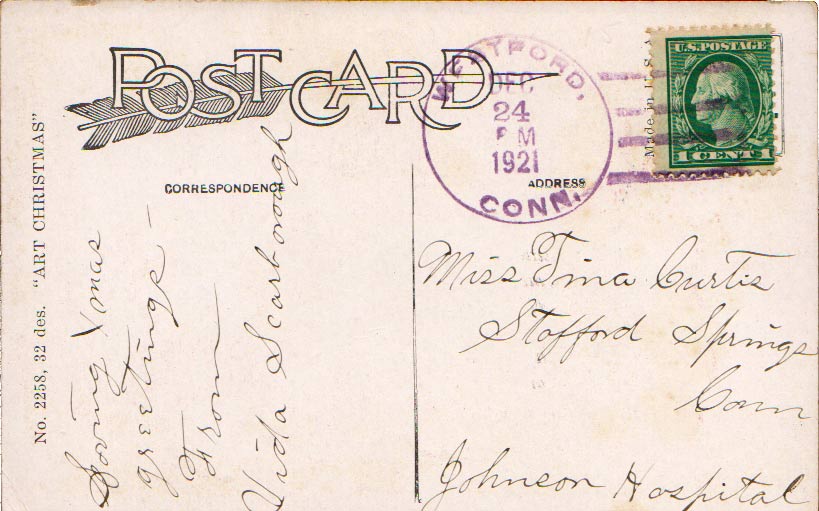 POST CARD
WESTFORD,
DEC
24
PM
1921
CONN.
U.S. POSTAGE
1 CENT 1
Made in U.S.A
CORRESPONDENCE
ADDRESS
No. 2258, 32 des. "ART CHRISTMAS"
Loving Xmas
greetings -
From
Vida Scarborough
Miss Tina Curtis
Stafford Springs
Conn
Johnson Hospital